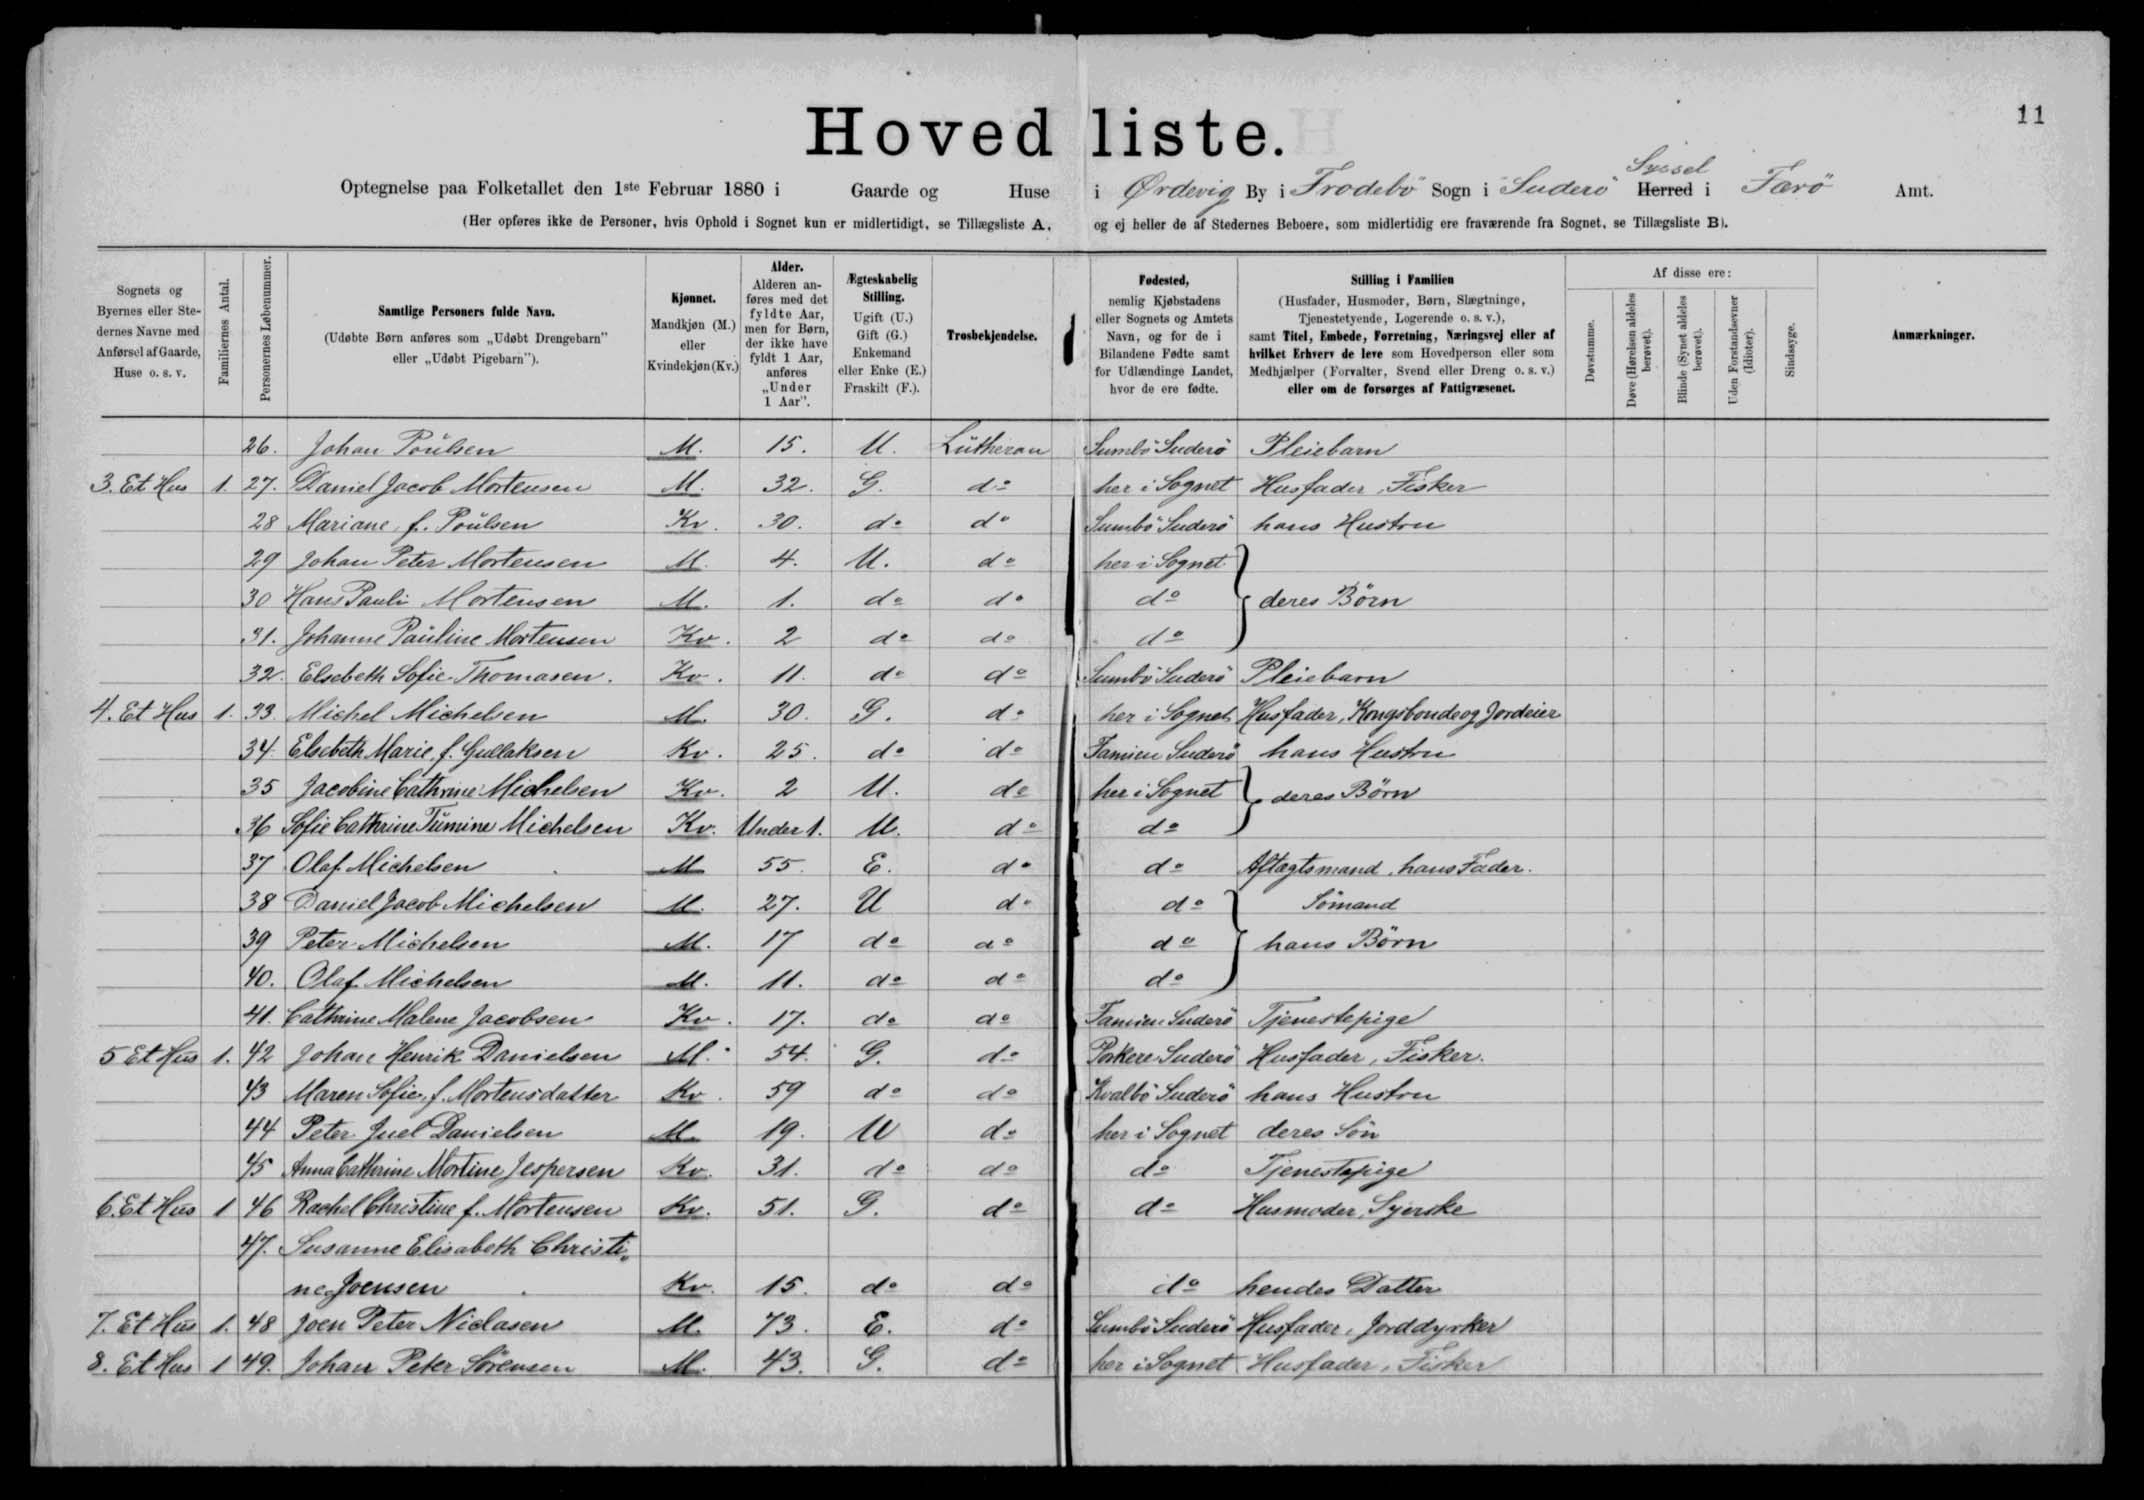 11
Hovedliste.
Optegnelse paa Folketallet den 1ste Februar 1880 i Gaarde og Huse i Ørdevig By i Frodebö Sogn i Suderö Syssel Herred i Færö Amt.
(Her opføres ikke de Personer, hvis Ophold i Sognet kun er midlertidigt, se Tillægsliste A, og ej heller de af Stedernes Beboere, som midlertidig ere fraværende fra Sognet, se Tillægsliste B).
Sognets og Byernes eller Stedernes Navne med Anførsel af Gaarde, Huse o. s. v.
Familiernes Antal.
Personernes Løbenummer.
Samtlige Personers fulde Navn.
(Udøbte Børn anføres som „Udøbt Drengebarn" eller „Udøbt Pigebarn").
Kjønnet.
Mandkjøn (M.) eller Kvindekjøn (Kv.)
Alder.
Alderen anføres med det fyldte Aar, men for Børn, der ikke have fyldt 1 Aar, anføres „Under 1 Aar".
Ægteskabelig Stilling.
Ugift (U.) Gift (G.) Enkemand eller Enke (E.) Fraskilt (F.).
Trosbekjendelse.
Fødested,
nemlig Kjøbstadens eller Sognets og Amtets Navn, og for de i Bilandene Fødte samt for Udlændinge Landet, hvor de ere fødte.
Stilling i Familien
(Husfader, Husmoder, Børn, Slægtninge, Tjenestetyende, Logerende o. s. v.),
samt Titel, Embede, Forretning, Næringsvej eller af hvilket Erhverv de leve som Hovedperson eller som Medhjælper (Forvalter, Svend eller Dreng o. s. v.) eller om de forsørges af Fattigvæsenet.
Af disse ere:
Døvstumme.
Døve (Hørelsen aldeles berøvet).
Blinde (Synet aldeles berøvet).
Uden Forstandsevner (Idioter).
Sindssyge.
Anmærkninger.
26. Johan Poülsen M. 15. U. Lütheran Sumbö Suderö Pleiebarn
3. Et Hus 1. 27. Daniel Jacob Mortensen M. 32. G. do her i Sognet Husfader, Fisker
28 Mariane, f. Poülsen Kv. 30. do do Sumbö Suderö hans Hustru
29 Johan Peter Mortensen M. 4. U. do her i Sognet
30 Hans Pauli Mortensen M. 1. do do do deres Börn
31. Johanne Paüline Mortensen Kv. 2 do do do
32. Elsebeth Sofie Thomasen. Kv. 11. do do Sumbö Suderö Pleiebarn
4. Et Hus 1. 33. Michel Michelsen M. 30. G. do her i Sognet Husfader, Kongsbonde og Jordeier
34. Elsebeth Marie, f. Gullaksen Kv. 25. do do Famien Suderö hans Hustru
35 Jacobine Cathrine Michelsen Kv. 2 U. do her i Sognet deres Börn
36 Sofie Cathrine Tümine Michelsen Kv. Under 1. U. do do
37 Olaf Michelsen M 55. E. do do Aftægtsmand, hans Fader.
38 Daniel Jacob Michelsen M. 27. U do do Sömand
39 Peter Michelsen M. 17 do do do hans Börn
40. Olaf Michelsen M. 11. do do do
41. Cathrine Malene Jacobsen Kv. 17. do do Famien Suderö Tjenestepige
5 Et Hus 1. 42 Johan Henrik Danielsen M. 54. G. do Porkere Suderö Husfader, Fisker.
43 Maren Sofie, f. Mortensdatter Kv. 59 do do Kvalbö Suderö hans Hustru
44 Peter Juel Danielsen M. 19. U do her i Sognet deres Sön
45 Anna Cathrine Mortine Jespersen Kv. 31. do do do Tjenestepige
6. Et Hus 1 46 Rachel Christine f. Mortensen Kv. 51. G. do do Husmoder, Syerske
47. Susanne Elisabeth Christi-
ne Joensen Kv. 15. do do do hendes Datter
7. Et Hus 1. 48 Joen Peter Niclasen M. 73. E. do Sumbö Suderö Husfader, Jorddyrker
8. Et Hus 1 49. Johan Peter Sörensen M. 43. G. do her i Sognet Husfader, Fisker